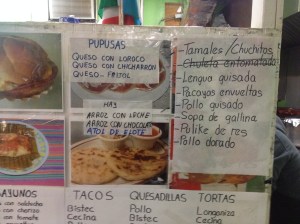 PUPUSAS
QUESO CON LOROCO
QUESO CON CHICHARRÓN
QUESO-FRIJOL
HAY
ARROZ CON LECHE
ARROZ CON CHOCOLATE
ATOL DE ELOTE
-Tamales/Chuchitos
-Chuleta entomatada
-Lengua guisada
-Pacayas envueltas
-Pollo guisado
-Sopa de gallina
-Polike de res
-Pollo dorado
AYUNOS
con salchicha
con chorizo
con tomate
TACOS
Bistec
Cecina
QUESADILLAS
Pollo
Bistec
TORTAS
Longaniza
Cecina